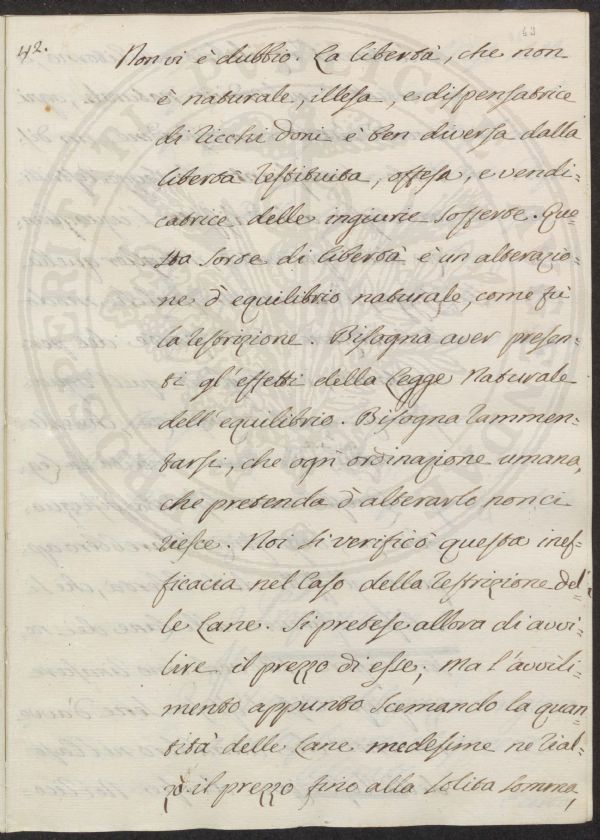 42.
Non vi è dubbio. La libertà, che non
è naturale, illesa, e dispensatrice
di ricchi doni è ben diversa dalla
libertà restituita, offesa, e vendi-
catrice delle ingiurie sofferte. Que-
sta sorte di libertà è un alterazio-
ne d'equilibrio naturale, come fù
la restrizione. Bisogna aver presen-
ti gl'effetti della Legge Naturale
dell'equilibrio. Bisogna rammen-
tarsi, che ogni ordinazione umana,
che pretenda d'alterarlo non ci
riesce. Noi si verificò questa inef-
ficacia nel Caso della restrizione del-
le Lane. Si pretese allora di avvi-
lire il prezzo di esse; Ma l'avvili-
mento appunto scemando la quan-
tità delle Lane medesime ne rial-
zò il prezzo fino alla solita somma,